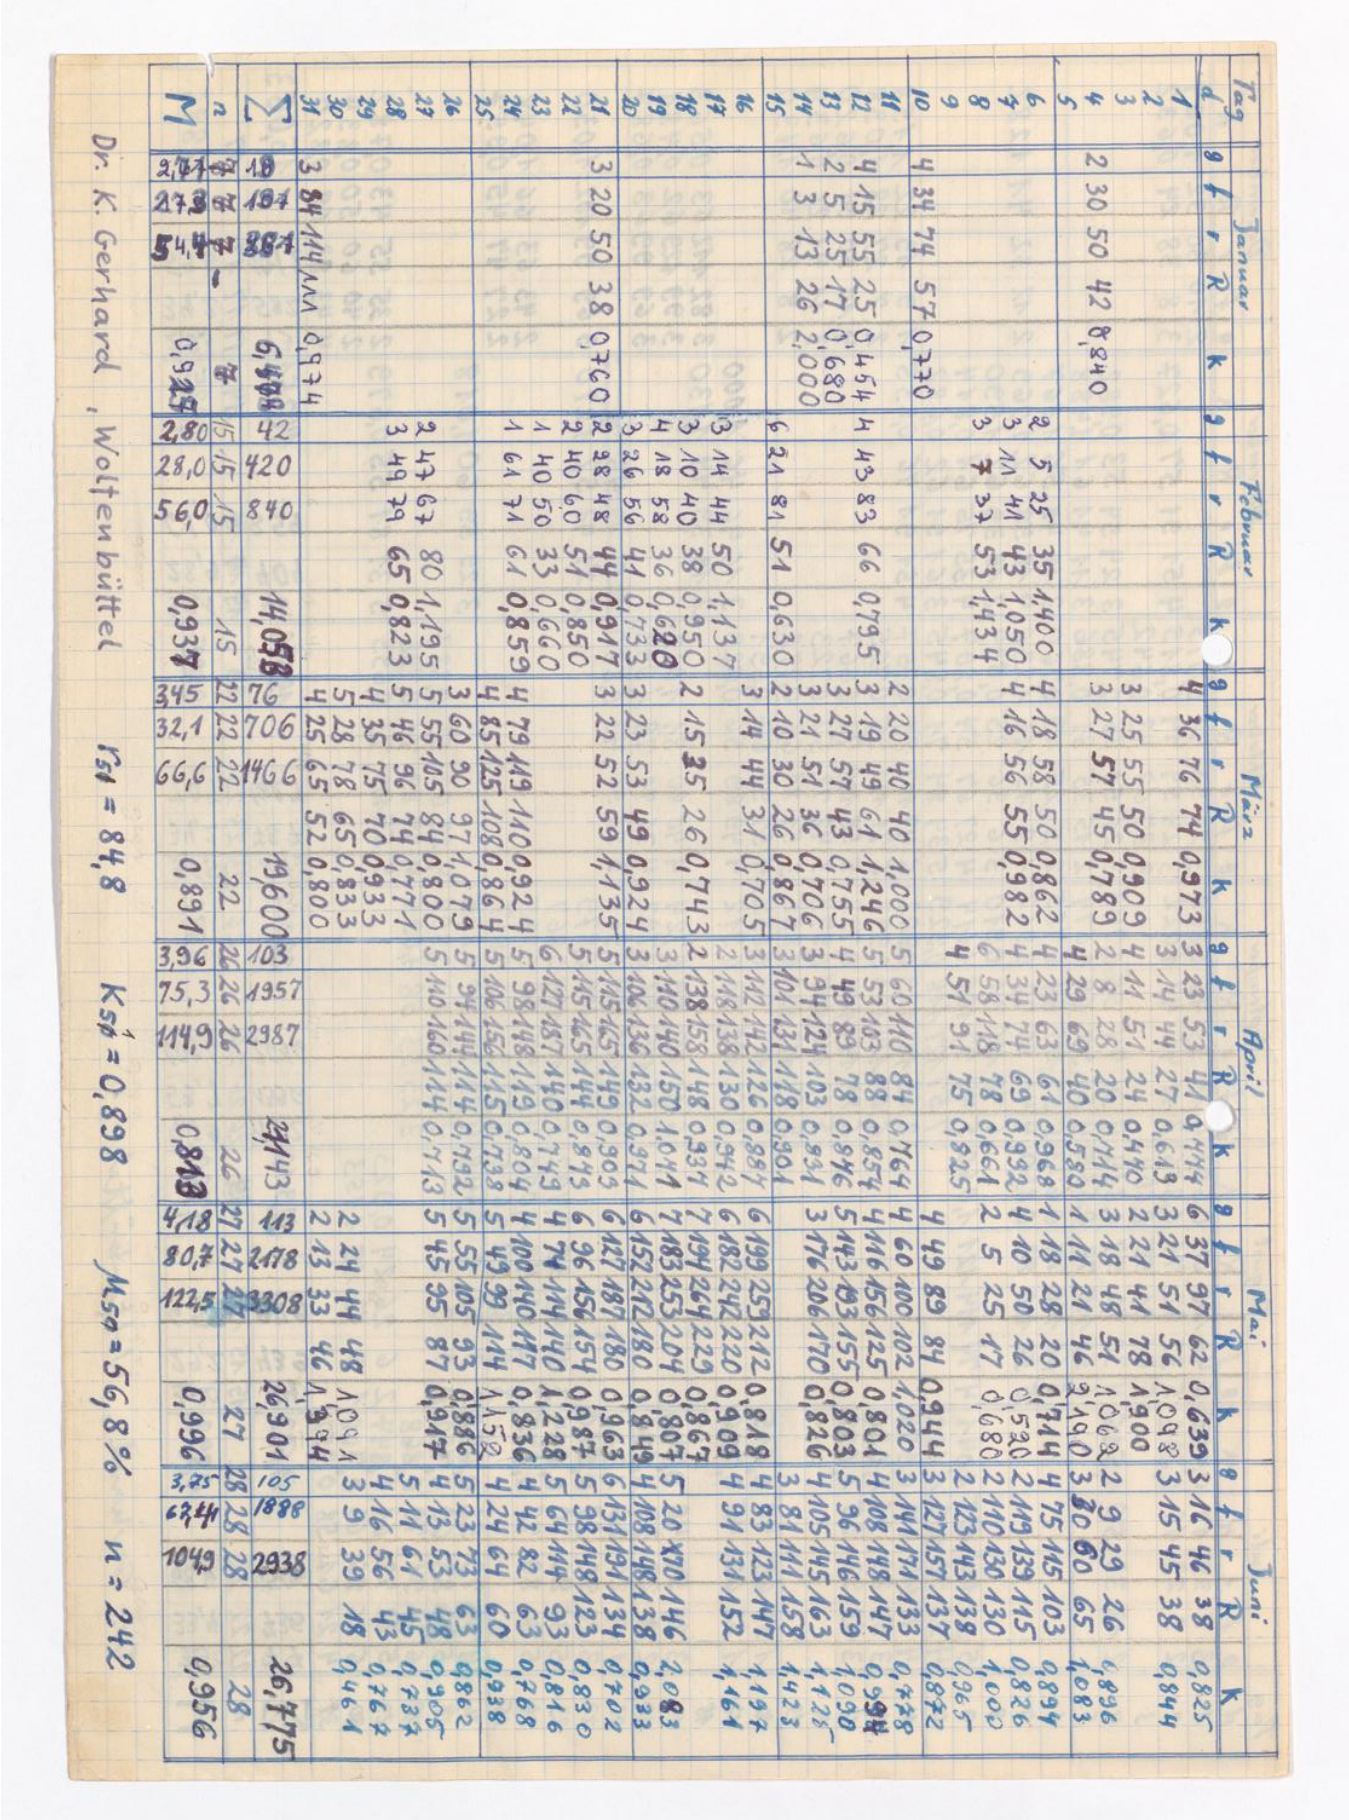 Tag Januar Februar März April Mai Juni
d g f r R k g f r R k g f r R k g f r R k g f r R k g f r R k
1 4 36 76 74 0,973 3 23 53 41 0,774 6 37 97 62 0,639 3 16 46 38 0,825
2 3 14 44 27 0,613 3 21 51 56 1,098 3 15 45 38 0,844
3 3 25 55 50 0,909 4 11 51 24 0,470 2 21 41 78 1,900
4 2 30 50 42 0,840 3 27 57 45 0,789 2 8 28 20 0,714 3 18 48 51 1,062 2 9 29 26 0,896
5 4 29 69 40 0,580 1 11 21 46 2,190 3 30 60 65 1,083
6 2 5 25 35 1,400 4 18 58 50 0,862 4 23 63 61 0,968 1 18 28 20 0,714 4 75 115 103 0,894
7 3 11 41 43 1,050 4 16 56 55 0,982 4 34 74 69 0,932 4 10 50 26 0,520 2 119 139 115 0,826
8 3 7 37 53 1,434 6 58 118 78 0,661 2 5 25 17 0,680 2 110 130 130 1,000
9 4 51 91 75 0,825 2 123 143 138 0,965
10 4 34 74 57 0,770 4 49 89 84 0,944 3 127 157 137 0,872
11 2 20 40 40 1,000 5 60 110 84 0,764 4 60 100 102 1,020 3 141 171 133 0,778
12 4 15 55 25 0,454 4 43 83 66 0,795 3 19 49 61 1,246 5 53 103 88 0,854 4 116 156 125 0,801 4 108 148 147 0,994
13 2 5 25 17 0,680 3 27 57 43 0,755 4 49 89 78 0,876 5 143 193 155 0,803 5 96 146 159 1,090
14 1 3 13 26 2,000 3 21 51 36 0,706 3 94 124 103 0,831 3 176 206 170 0,826 4 105 145 163 1,125
15 6 21 81 51 0,630 2 10 30 26 0,867 3 101 131 118 0,901 3 81 111 158 1,423
16 3 14 44 31 0,705 3 112 142 126 0,887 6 199 259 212 0,818 4 83 123 147 1,197
17 3 14 44 50 1,137 2 118 138 130 0,942 6 182 242 220 0,909 4 91 131 152 1,161
18 3 10 40 38 0,950 2 15 35 26 0,743 2 138 158 148 0,937 7 194 264 229 0,867
19 4 18 58 36 0,620 3 110 140 150 1,071 7 183 253 204 0,807 5 20 70 146 2,083
20 3 26 56 41 0,733 3 23 53 49 0,924 3 106 136 132 0,971 6 152 212 180 0,849 4 108 148 138 0,933
21 3 20 50 38 0,760 2 28 48 44 0,917 3 22 52 59 1,135 5 115 165 149 0,903 6 127 187 180 0,963 6 131 191 134 0,702
22 2 40 60 51 0,850 5 115 165 144 0,873 6 96 156 154 0,987 5 98 148 123 0,830
23 1 40 50 33 0,660 6 127 187 140 0,749 4 74 114 140 1,228 5 64 114 93 0,816
24 1 61 71 61 0,859 4 79 119 110 0,924 5 98 148 119 0,804 4 100 140 117 0,836 4 42 82 63 0,768
25 4 85 125 108 0,864 5 106 156 115 0,738 5 49 99 114 1,152 4 24 64 60 0,938
26 3 60 90 97 1,079 5 94 144 114 0,792 5 55 105 93 0,886 5 23 73 63 0,862
27 2 47 67 80 1,195 5 55 105 84 0,800 5 110 160 114 0,713 5 45 95 87 0,917 4 13 53 48 0,905
28 3 49 79 65 0,823 5 46 96 74 0,771 5 11 61 45 0,737
29 4 35 75 70 0,933 4 16 56 43 0,767
30 5 28 78 65 0,833 2 24 44 48 1,091 3 9 39 18 0,461
31 3 84 114 111 0,974 4 25 65 52 0,800 2 13 33 46 1,394
Σ 19 6,478 42 420 840 14,053 76 706 1466 19,600 103 1957 2987 21,143 113 2178 3308 26,901 105 1888 2938 26,775
n 7 7 7 - 7 15 15 15 15 22 22 22 22 26 26 26 26 27 27 27 27 28 28 28 28
M 54,4 2,80 28,0 56,0 0,937 3,45 32,1 66,6 0,891 3,96 75,3 114,9 0,813 4,18 80,7 122,5 0,996 3,75 67,4 104,9 0,956
Dr. K. Gerhard, Wolfenbüttel r51 = 84,8 K51 = 0,898 M50 = 56,8 % n = 242